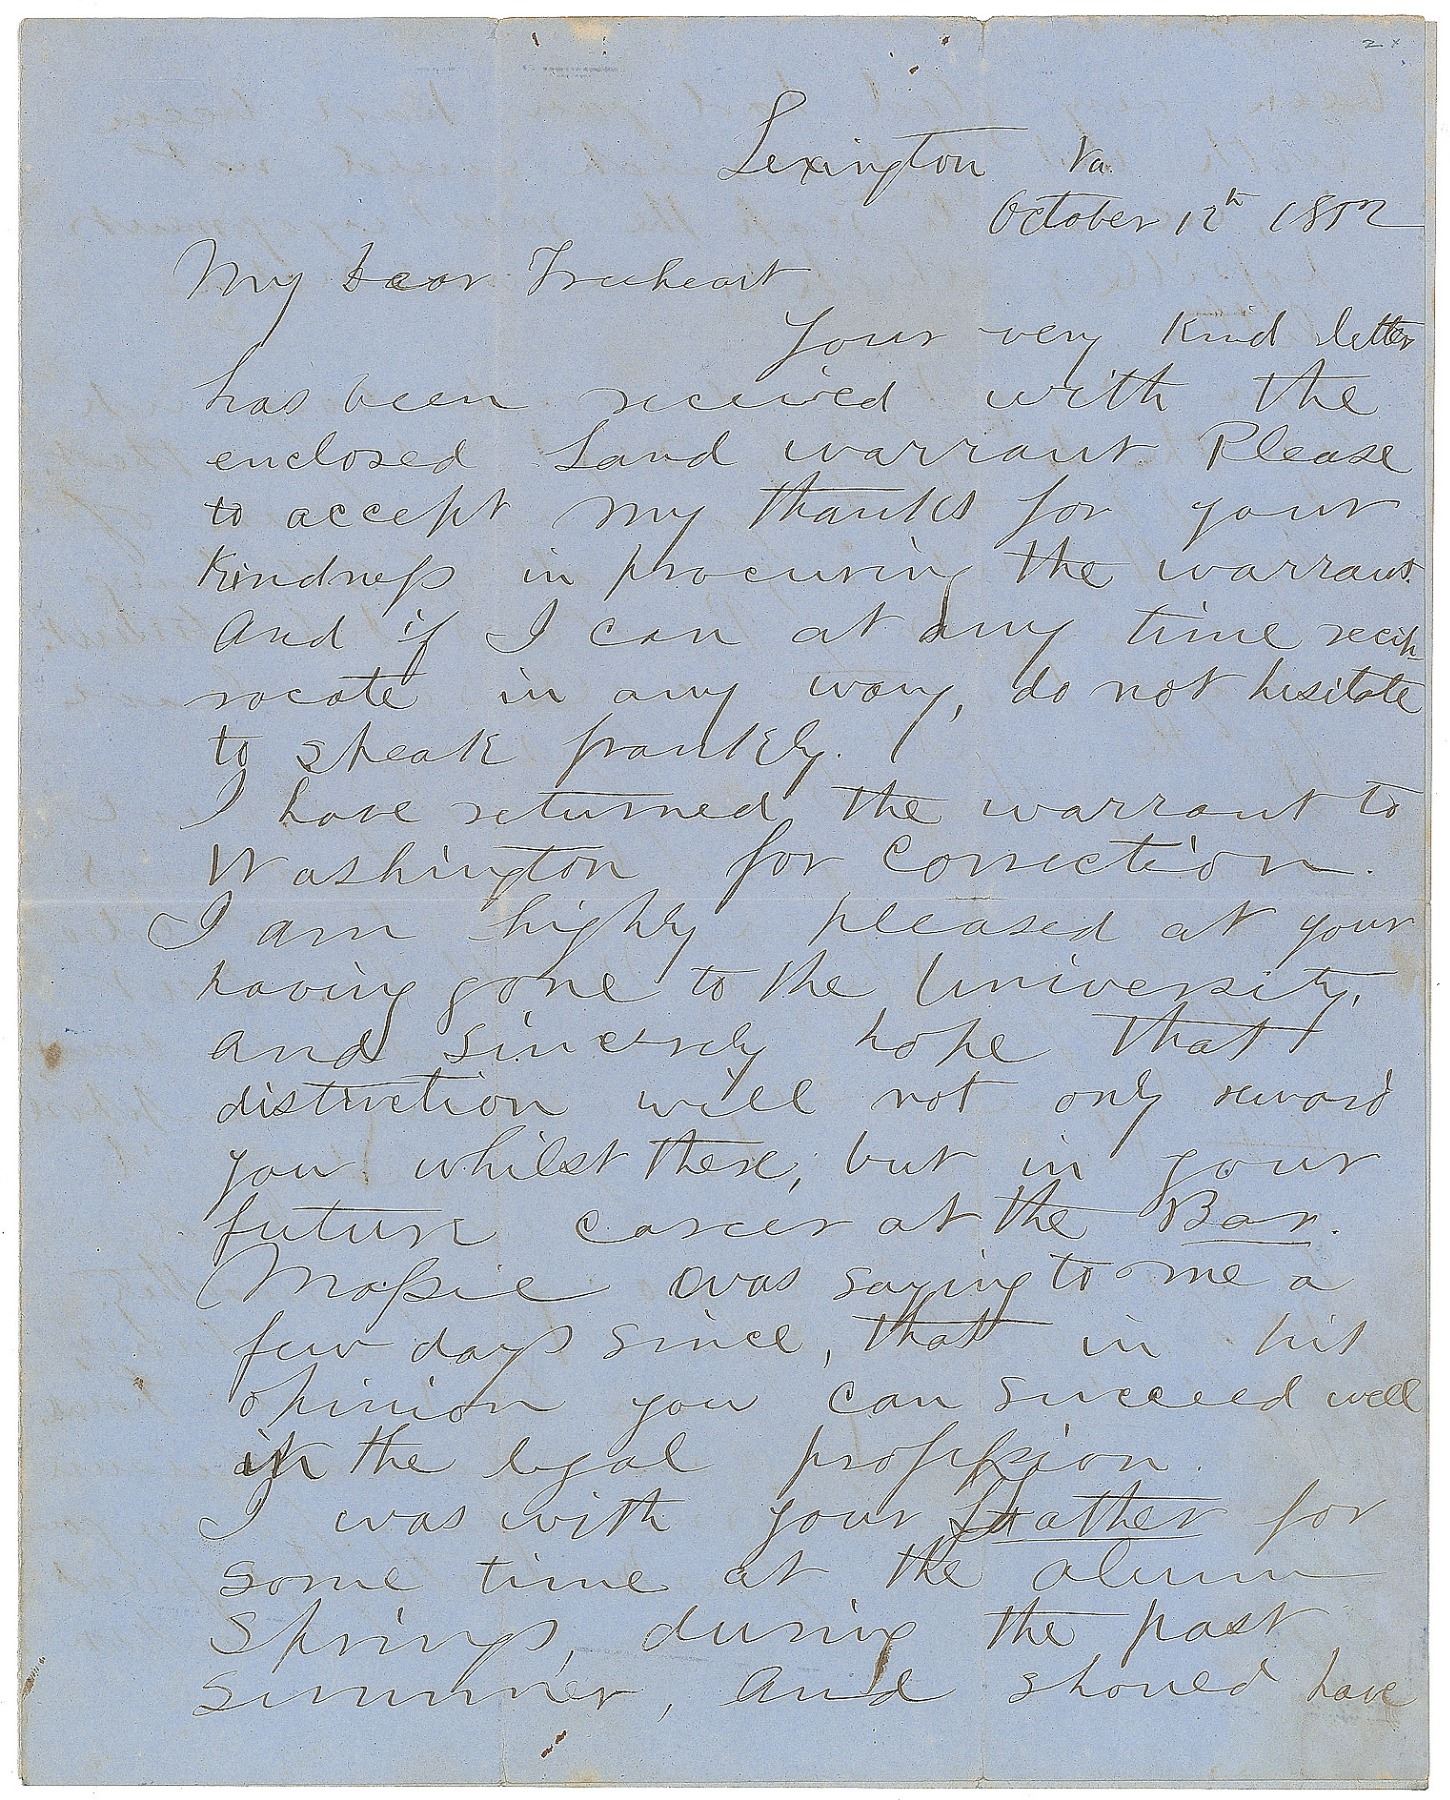 Lexington Va.
October 12th 1852
My dear Trueheart
Your very kind letter
has been received with the
enclosed Land warrant Please
to accept my thanks for your
Kindness in procuring the warrant.
And if I can at any time recip
rocate in any way, do not hesitate
to speak frankly.
I have returned the warrant to
Washington for correction.
I am highly pleased at your
having gone to the University,
and sincerely hope that
distinction will not only reward
you whilst there, but in your
future career at the Bar.
Massie was saying to me a
few days since, that in his
opinion you can succeed well
in the legal profession.
I was with your Father for
some time at the alum
Springs, during the past
summer, and should have